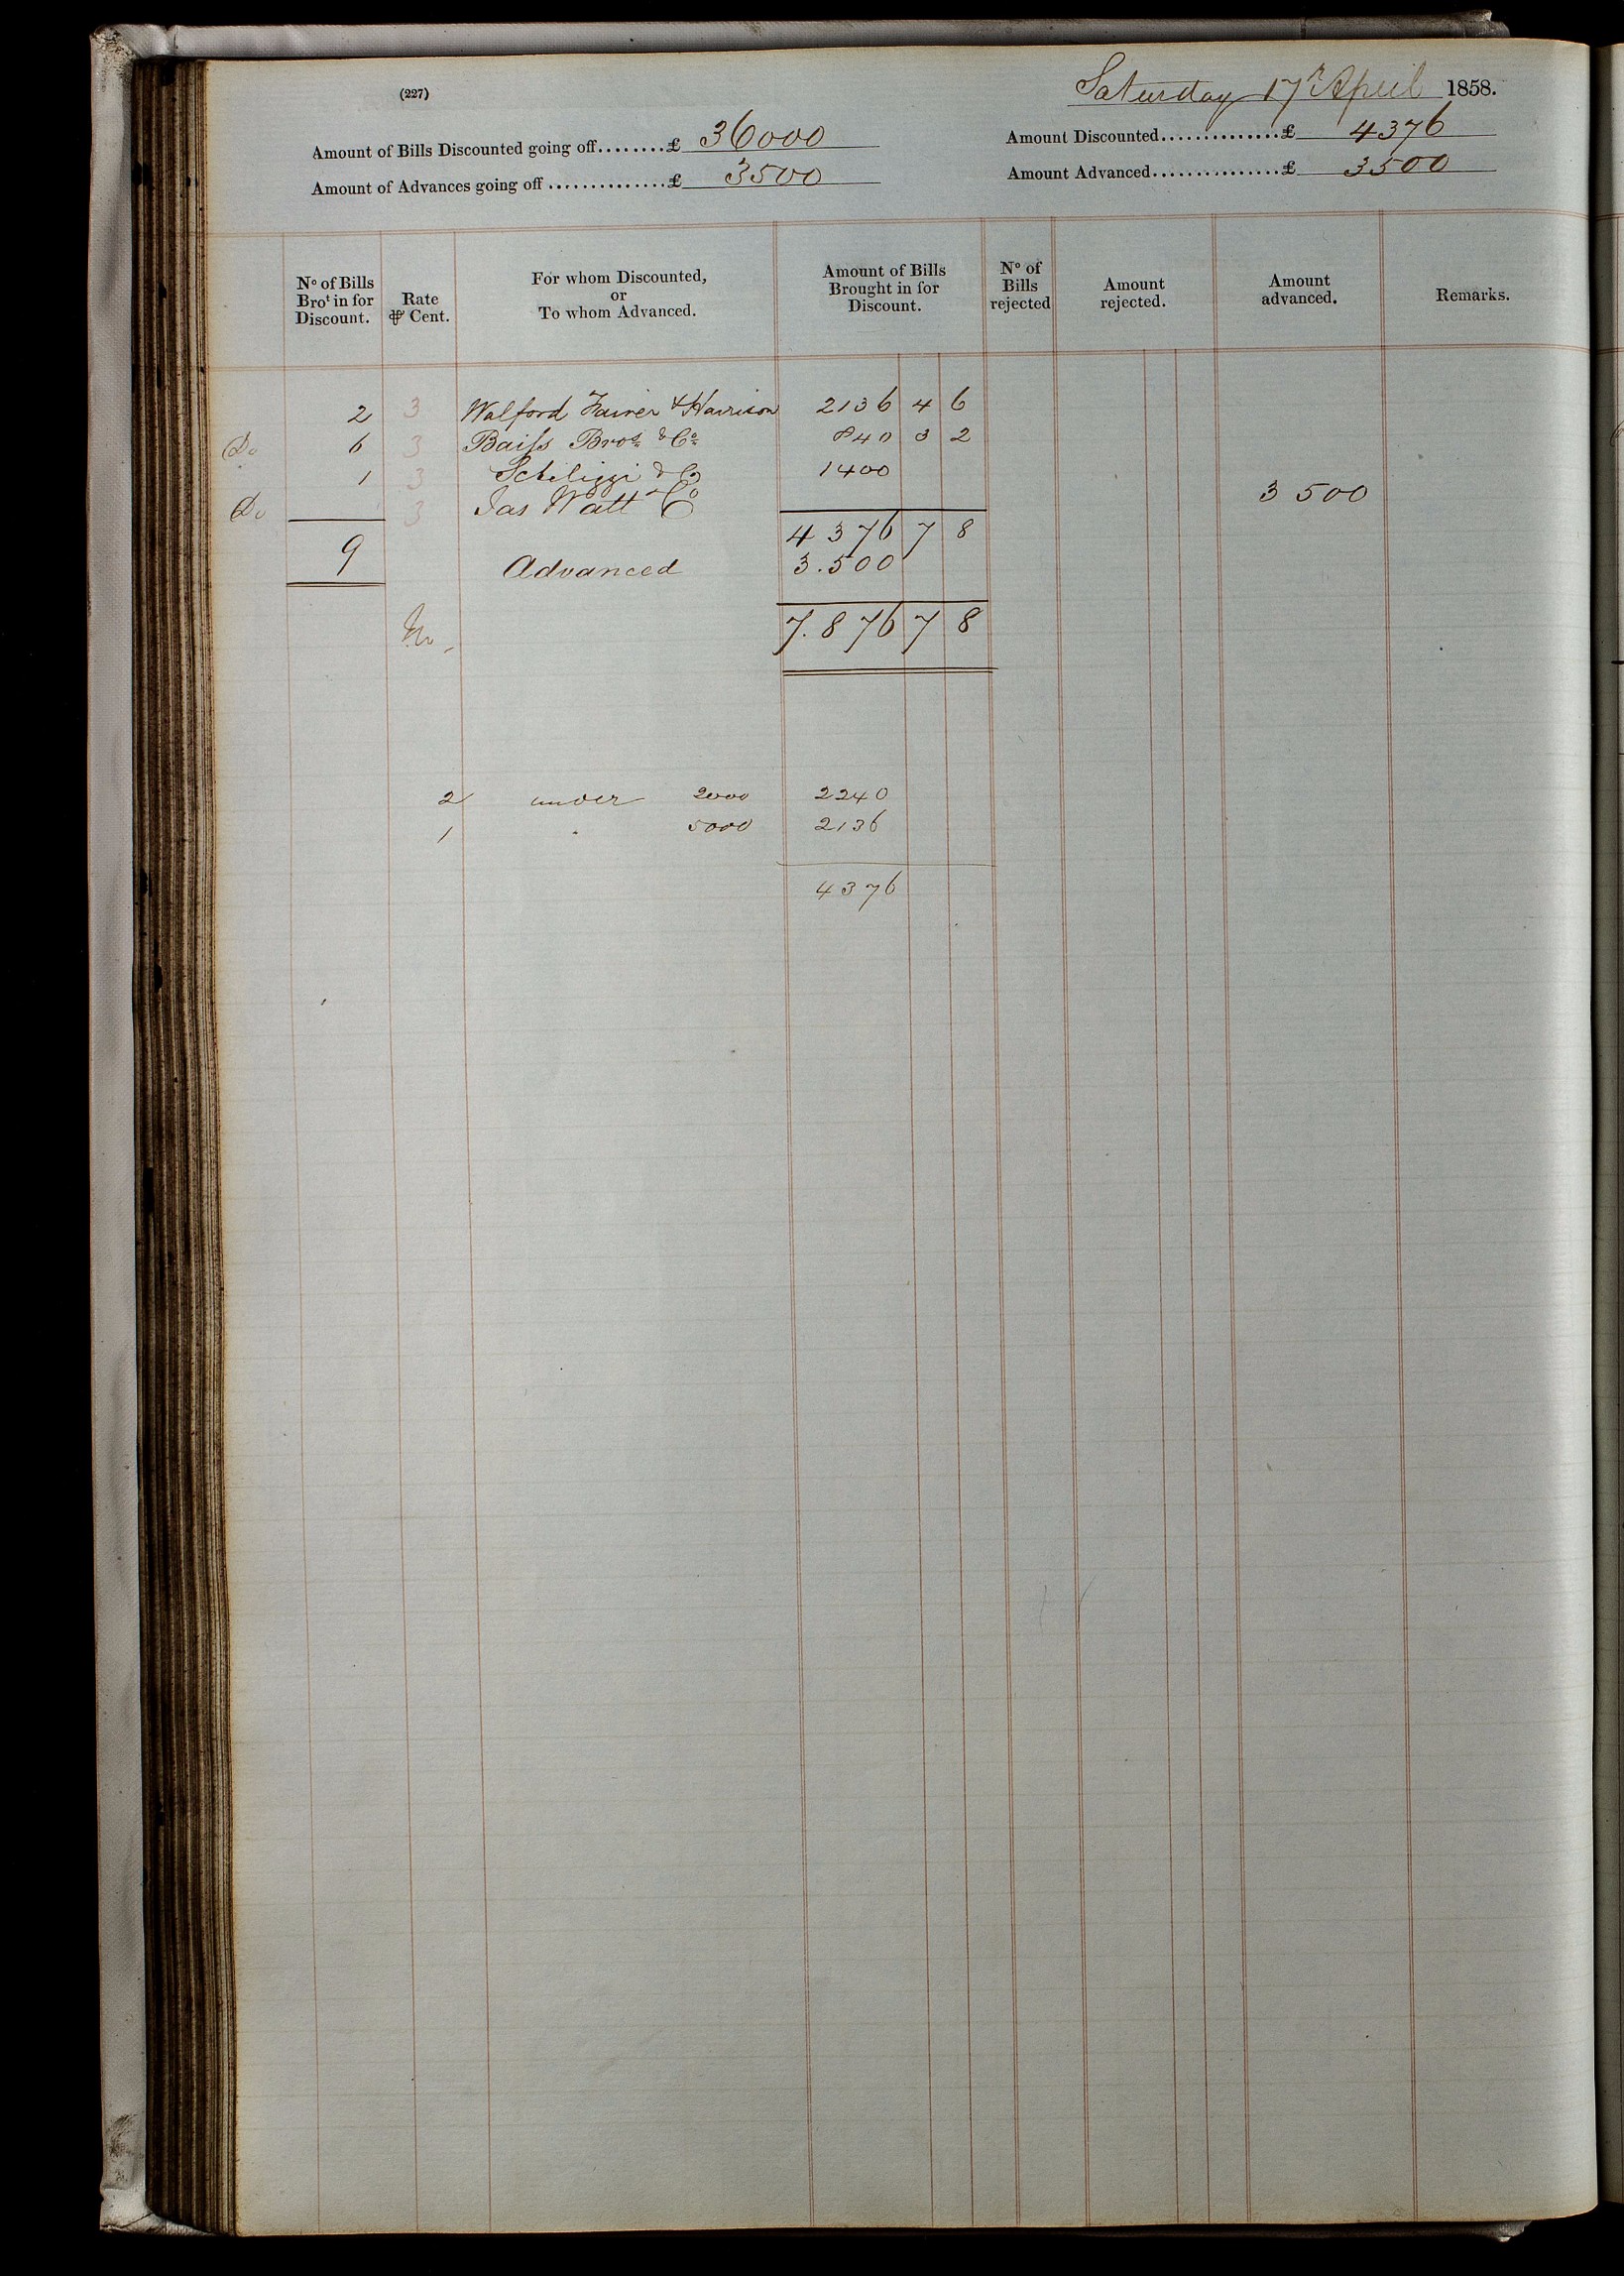 (227)
Saturday 17th April 1858.
Amount of Bills Discounted going off........£ 36000
Amount Discounted..............£ 4376
Amount of Advances going off ..............£ 3500
Amount Advanced...............£ 3500
No of Bills Brot in for Discount.
Rate ⅌ Cent.
For whom Discounted, or To whom Advanced.
Amount of Bills Brought in for Discount.
No of Bills rejected
Amount rejected.
Amount advanced.
Remarks.
2 3 Walford & Harrison 2136 4 6
Do 6 3 Baiss Bros & Co 840 3 2
1 3 Schilizzi & Co 1400
Do 3 Jas Watt & Co 3 500
9 4376 7 8
Advanced 3.500
7.876 7 8
2 under 2000 2240
1 " 5000 2136
4376